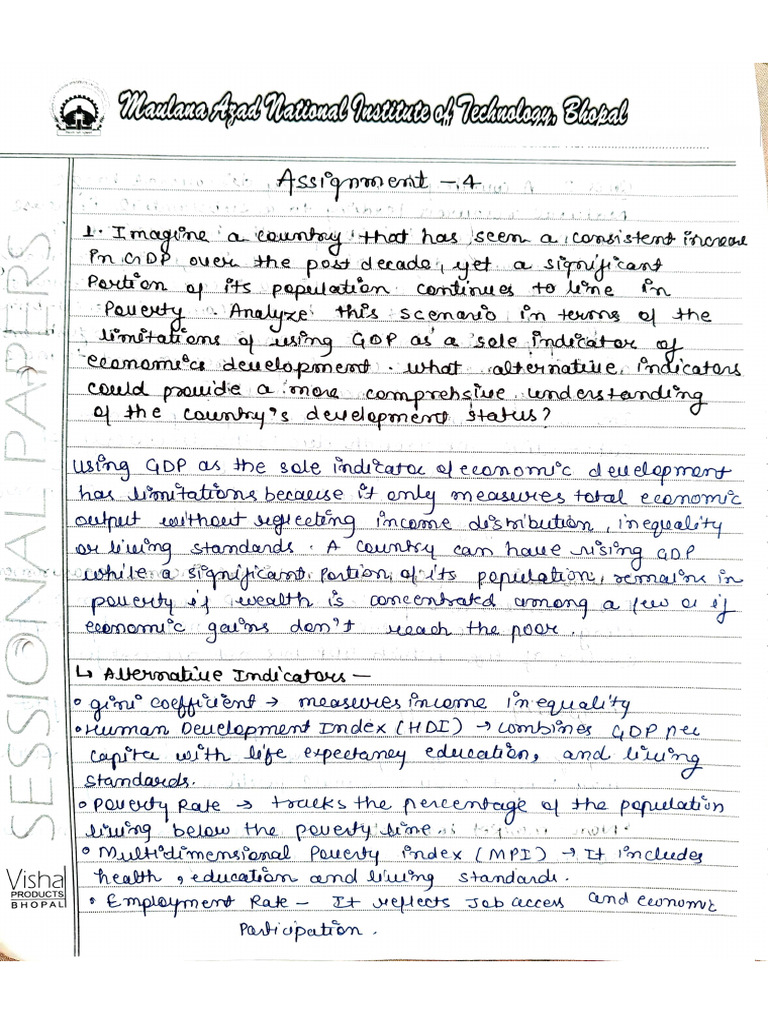 Maulana Azad National Institute of Technology, Bhopal
Assignment - 4
1. Imagine a country that has seen a consistent increase
in GDP over the past decade, yet a significant
Portion of its population continues to live in
Poverty. Analyze this scenario in terms of the
limitations of using GDP as a sole indicator of
economics development. what alternative indicators
could provide a more comprehsive understanding
of the country's development status?
using GDP as the sole indicator of economic development
has limitations because it only measures total economic
output without reflecting income distribution, inequality
or living standards. A country can have rising GDP
while a significant Portion of its population, remains in
poverty if wealth is concentrated among a few or if
economic gains don't reach the poor.
↳ Alternative Indicators —
• gini coefficient → measures income inequality
• Human Development Index (HDI) → combines GDP per
capita with life expectancy education, and living
standards.
• Poverty Rate → tracks the percentage of the population
living below the poverty line.
• Multidimensional Poverty index (MPI) → It includes
health, education and living standards.
• Employment Rate - It reflects Job access and economic
Participation.
SESSIONAL PAPERS
Vishal
PRODUCTS
BHOPAL